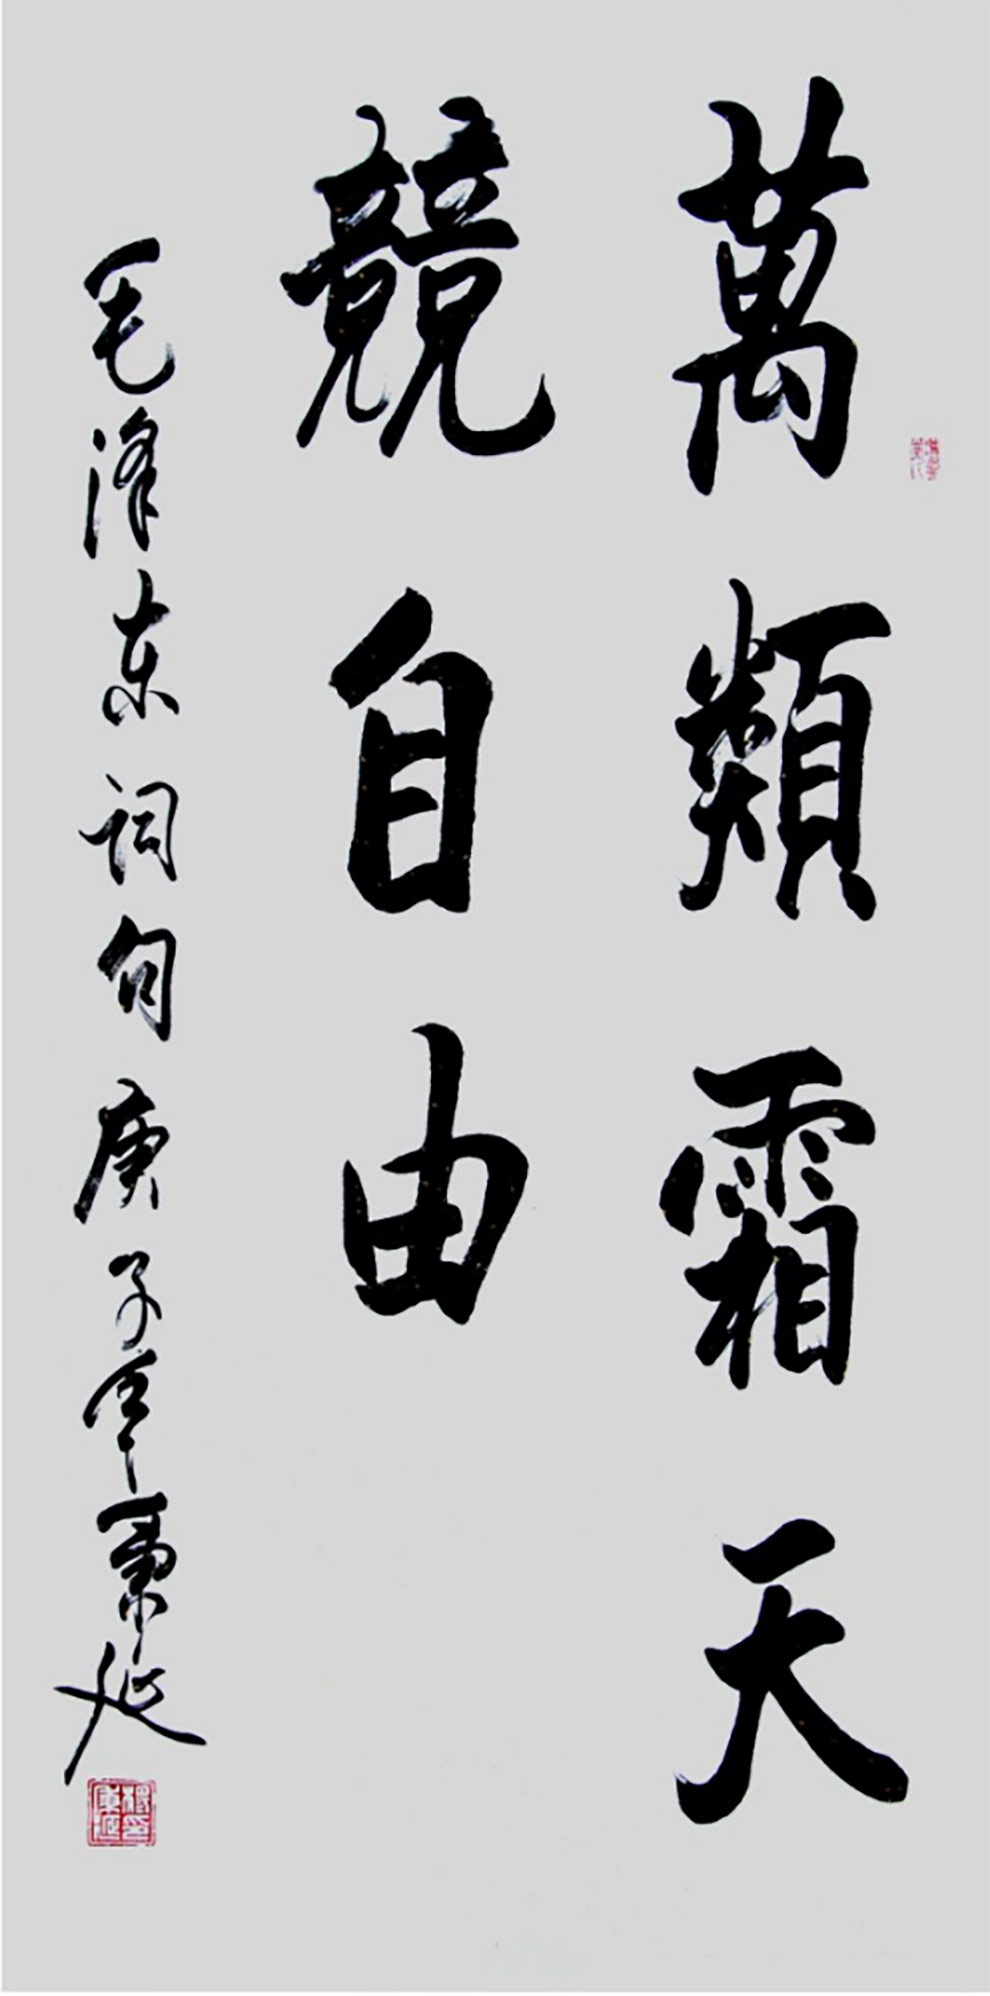 萬類霜天
競自由
毛泽东词句庚子年秉延